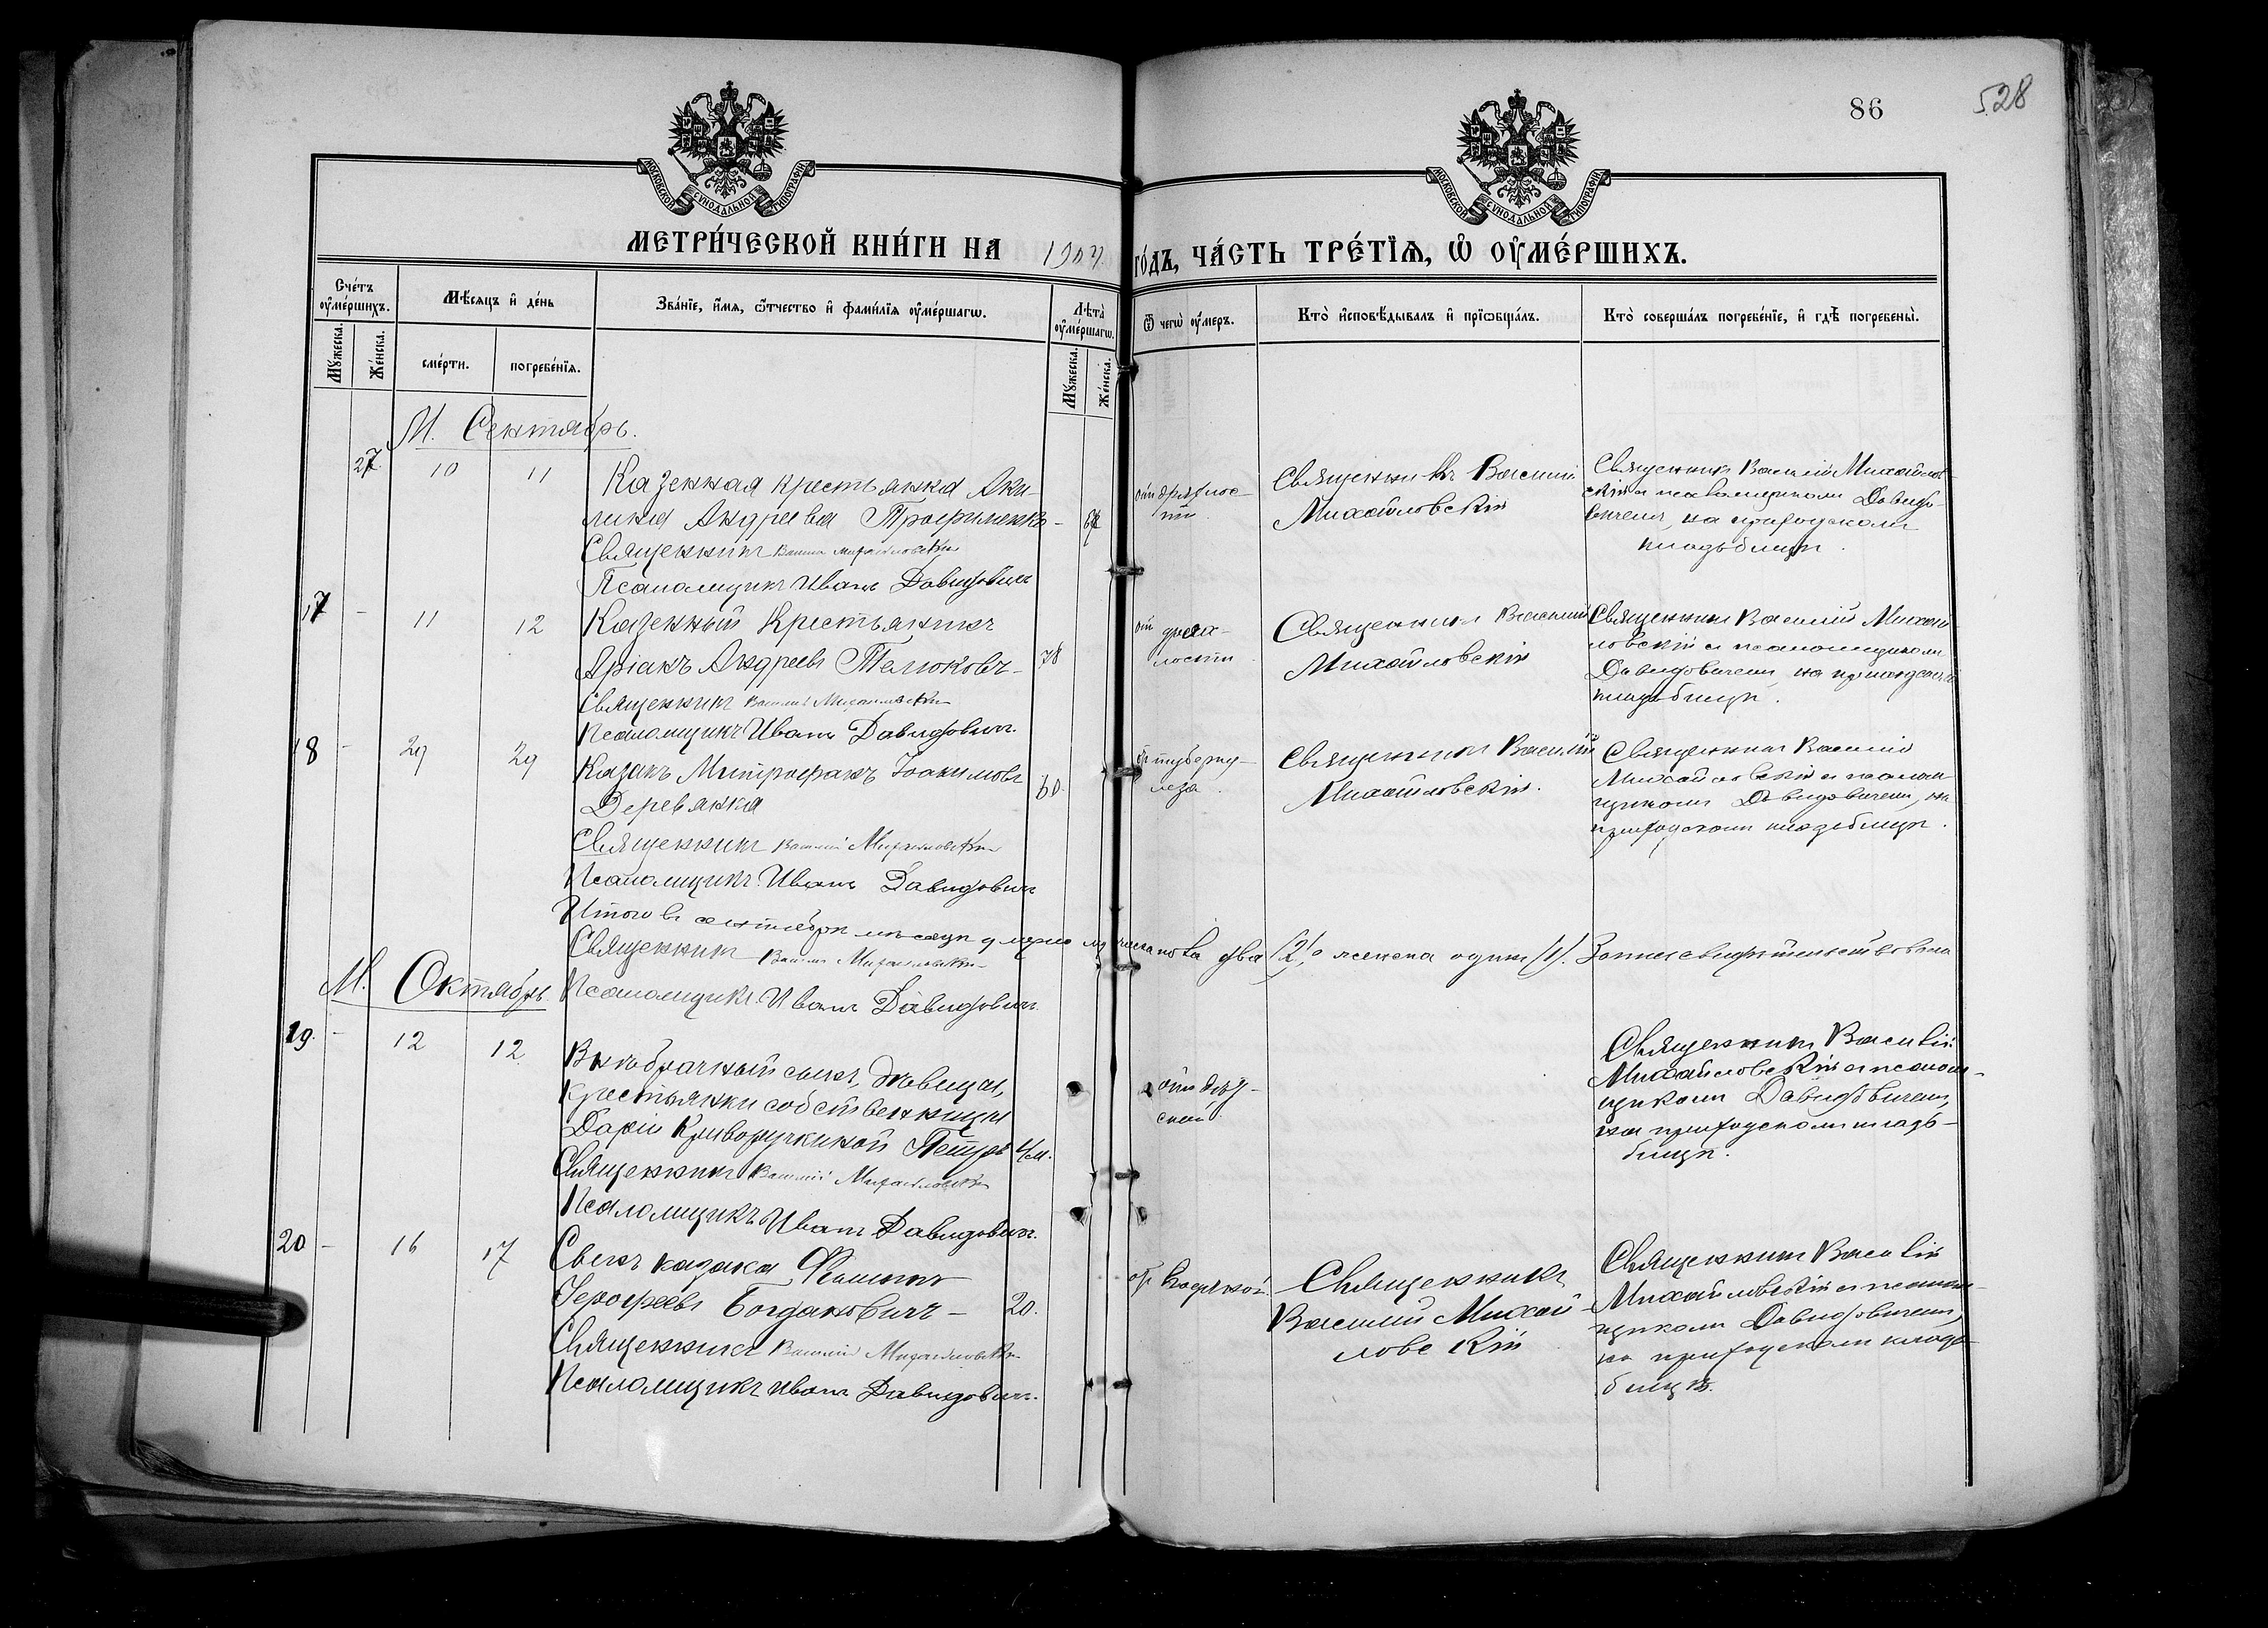 86
528
МОСКОВСКОЙ СУНОДАЛЬНОЙ ТИПОГРАФІИ
МОСКОВСКОЙ СУНОДАЛЬНОЙ ТИПОГРАФІИ
МЕТРИ́ЧЕСКОЙ КНИ́ГИ НА 1904 ГО́ДЪ, ЧА́СТЬ ТРЕ́ТЇѦ, Ѡ҆ ОУ҆МЕ́РШИХЪ.
Сче́тъ оу҆ме́ршихъ.
Мѣ́сяцъ и҆ де́нь
Зва́нїе, и҆́мѧ, ѻ҆́тчество и҆ фами́лїѧ оу҆ме́ршагѡ.
Лѣ́та оу҆ме́ршагѡ.
Ѿ чегѡ̀ оу҆́меръ.
Кто̀ и҆сповѣ́дывалъ и҆ прїѡбща́лъ.
Кто̀ соверша́лъ погребе́нїе, и҆ гдѣ̀ погребены̀.
Мꙋ́жеска.
Же́нска.
сме́рти.
погребе́нїѧ.
Мꙋ́жеска.
Же́нска.
М. Сентябрь.
27. 10 11
Казенная крестьянка Аки-
лина Андреева Трофименко-
Священникъ Василій Михайловскій
Псаломщикъ Иванъ Давидовичъ
отъ дряхлос-
ти
Священникъ Василій
Михайловскій
Священникъ Василій Михайлов-
скій съ псаломщикомъ Давидо-
вичемъ, на приходскомъ
кладбищѣ.
17 - 11 12
Казенный Крестьянинъ
Андреевъ
78
Священникъ Василій Михайловскій
Псаломщикъ Иванъ Давидовичъ.
отъ дряхлости
Священникъ Василій
Михайловскій
Священникъ Василій Михай-
ловскій съ псаломщикомъ
Давидовичемъ, на приходскомъ
кладбищѣ.
18 - 29 29
Казакъ Митрофанъ Іоакимовъ
Деревянка
60
Священникъ Василій Михайловскій
Псаломщикъ Иванъ Давидовичъ
отъ туберку-
леза.
Священникъ Василій
Михайловскій.
Священникъ Василій
Михайловскій съ псалом-
щикомъ Давидовичемъ, на
приходскомъ кладбищѣ.
Итого въ сентябрѣ мѣсяцѣ умерло мужеска пола два (2), а женска одинъ (1). свидѣтельствовали
Священникъ Василій Михайловскій
Псаломщикъ Иванъ Давидовичъ.
М. Октябрь.
19. - 12 12
Внѣбрачный сынъ, дѣвицы,
крестьянки собственницы
Даріи Криворучкиной Петръ
4 м.
Священникъ Василій Михайловскій
Псаломщикъ Иванъ Давидовичъ.
Священникъ Василій
Михайловскій съ псалом-
щикомъ Давидовичемъ,
на приходскомъ клад-
бищѣ.
20 - 16 17
Сынъ казака
Іерофеевъ Богдановичъ -
20.
Священникъ Василій Михайловскій
Псаломщикъ Иванъ Давидовичъ.
Священникъ
Василій Михай-
ловскій
Священникъ Василій
Михайловскій съ псалом-
щикомъ Давидовичемъ,
на приходскомъ клад-
бищѣ.